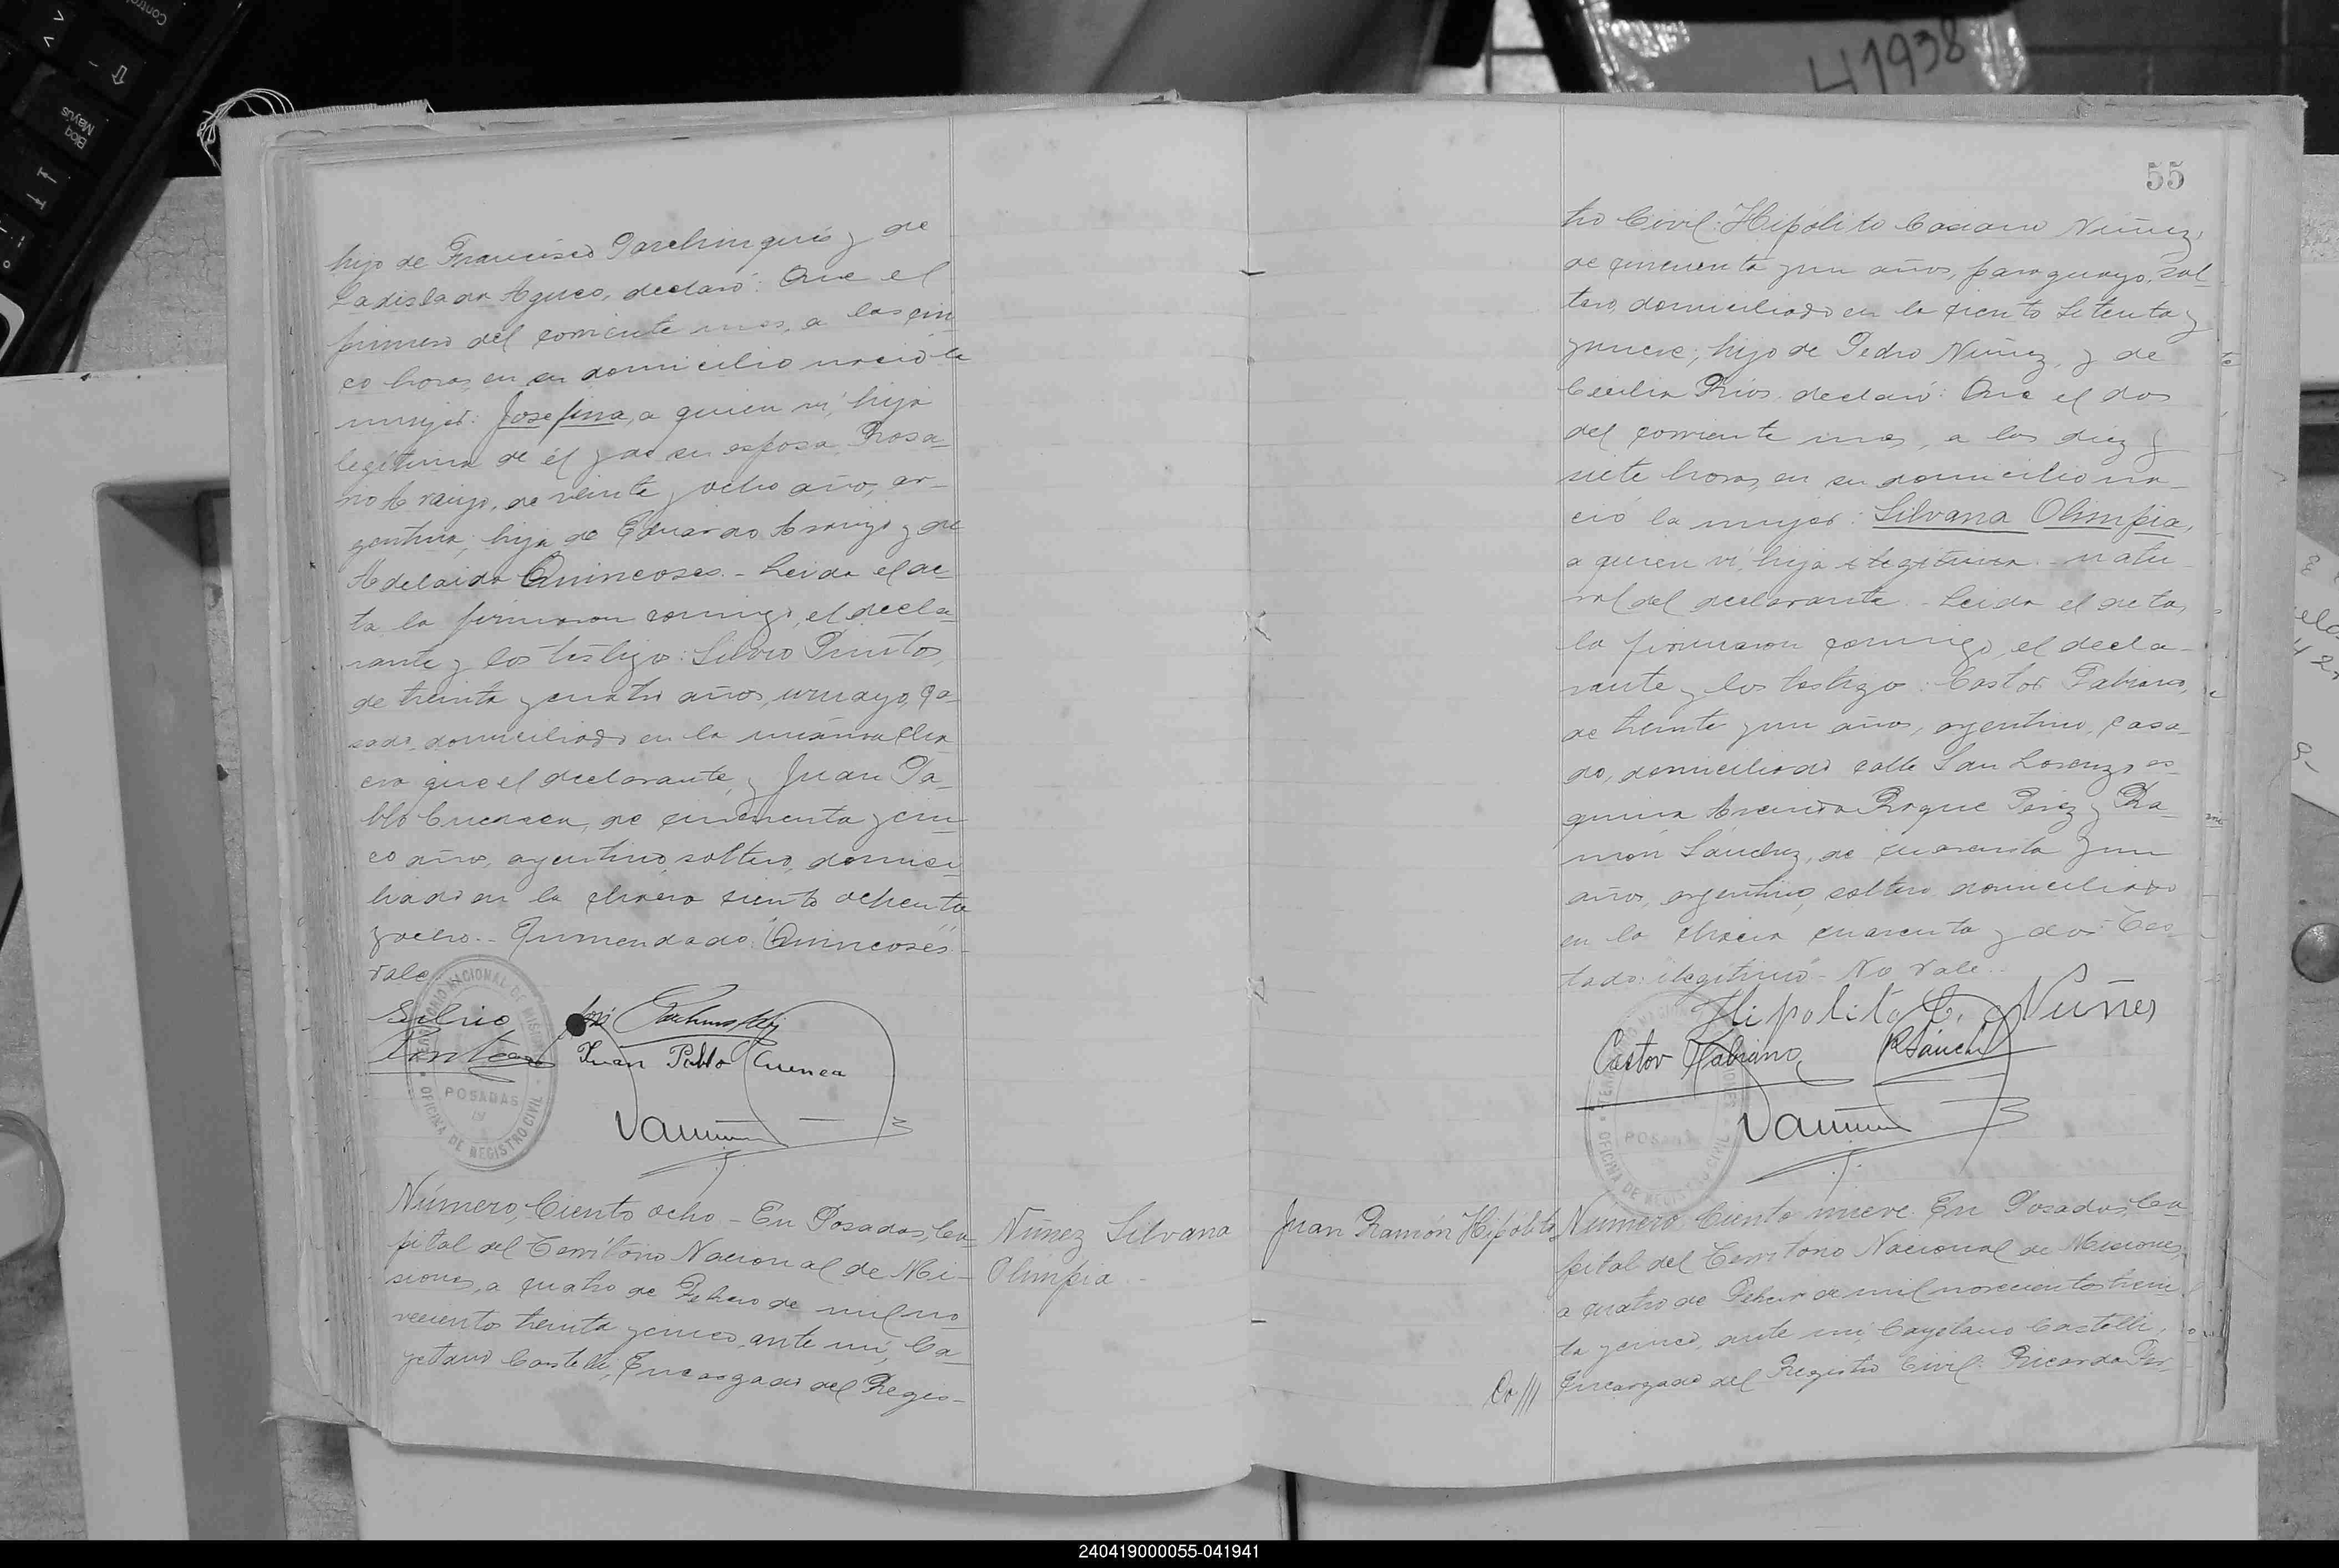 41938
55
hijo de Francisco Parchinquis y de
Ladislada Agueo, declaró: Que el
primero del corriente mes, a las cin
co horas, en su domicilio nació la
mujer: Josefina, a quien ví, hija
legítima de él y de su esposa Rosa
rio Araujo, de veinte y ocho años, ar-
gentina, hija de Eduardo Araujo y de
Adelaida Quincoses. - Leida el ac
ta la firmaron conmigo, el decla
rante y los testigos: Silvio Printos,
de treinta y cuatro años, uruayo, ca-
sado, domiciliado en la misma cha
cra que el declarante, y Juan Pa-
blo Cuenca, de cincuenta y cin
co años, argentino, soltero, domici
liado en la chacra ciento ochenta
y ocho. - Enmendado: Quincoses
vale
Silvio
José
Juan Pablo Cuenca
TERRITORIO NACIONAL DE MISIONES
POSADAS
OFICINA DE REGISTRO CIVIL
Número, Ciento ocho - En Posadas, Ca
pital del Territorio Nacional de Mi-
siones, a cuatro de Febrero de mil no
vecientos treinta y cinco, ante mí, Ca-
yetano Castelli, Encargado del Regis-
Núñez Silvana
Olimpia
tro Civil: Hipólito Casiano Núñez,
de cincuenta y un años, paraguayo, sol
tero, domiciliado en la ciento setenta y
y nueve; hijo de Pedro Núñez, y de
Cecilia Ríos, declaró: Que el dos
del corriente mes, a las diez y
siete horas, en su domicilio na-
ció la mujer: Silvana Olimpia,
a quien ví, hija ilegítima. - natu-
ral del declarante. - Leida el acta,
la firmaron conmigo, el decla-
rante y los testigos: Castor Fabiano,
de treinta y un años, argentino, casa-
do, domiciliado calle San Lorenzo es-
quina Avenida Roque Pérez y Ra-
món Sánchez, de cuarenta y un
años, argentino, soltero domiciliado
en la chacra cuarenta y dos - Tes
tado: ilegítima - No vale.
Hipolito C. Núñes
Castor Fabiano
RSánchez
TERRITORIO NACIONAL DE MISIONES
POSADAS
OFICINA DE REGISTRO CIVIL
Juan Ramón Hipólito
Número Ciento nueve. En Posadas, Ca
pital del Territorio Nacional de Misiones,
a cuatro de Febrero de mil novecientos trein
ta y cinco, ante mí, Cayetano Castelli,
Encargado del Registro Civil: Ricardo
240419000055-041941